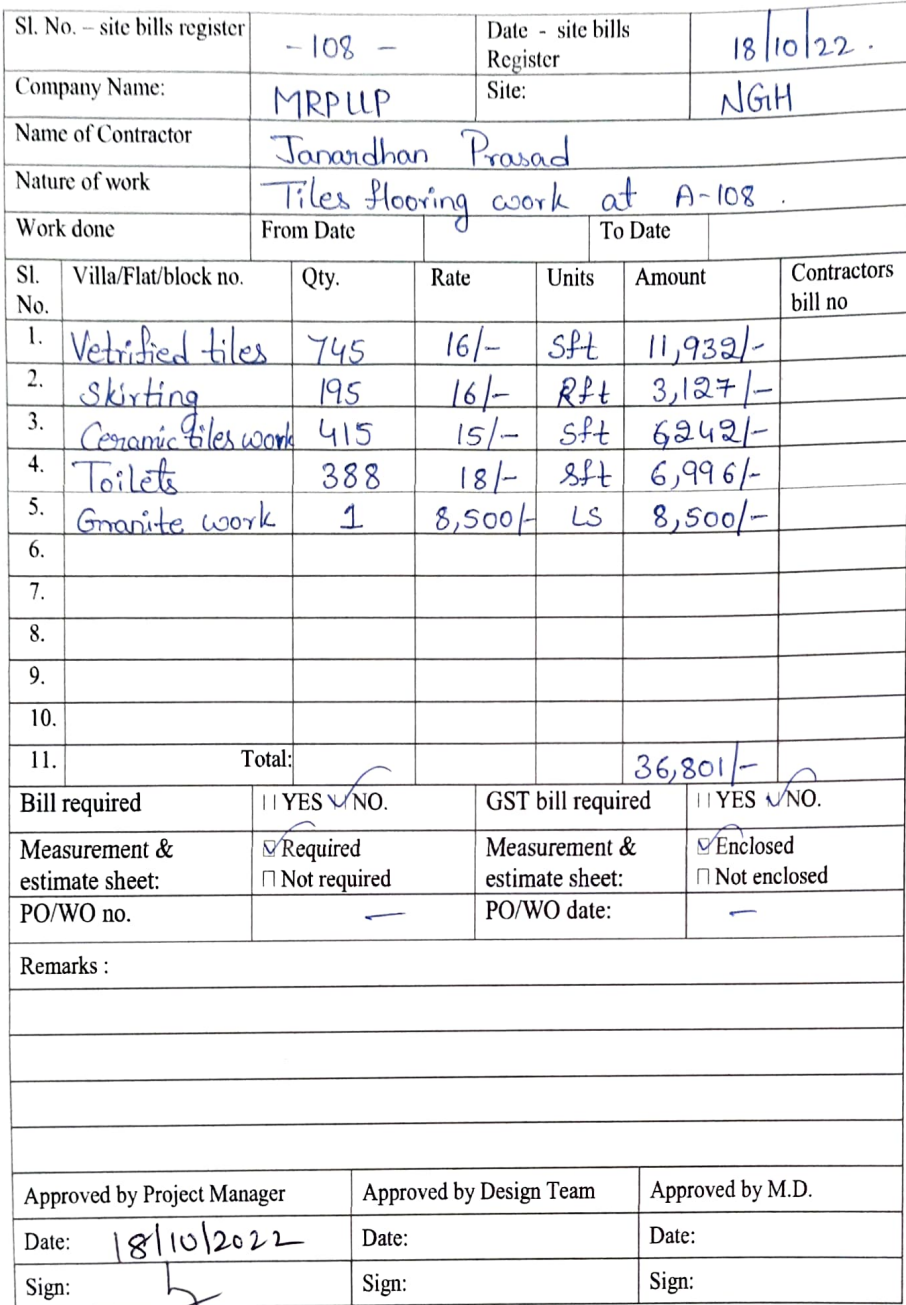 Sl. No. – site bills register - 108 - Date - site bills Register 18/10/22.
Company Name: MRPLLP Site: NGH
Name of Contractor Janardhan Prasad
Nature of work Tiles flooring work at A-108.
Work done From Date To Date
Sl. No. Villa/Flat/block no. Qty. Rate Units Amount Contractors bill no
1. Vetrified tiles 745 16/- Sft 11,932/-
2. Skirting 195 16/- Rft 3,127/-
3. Ceramic tiles work 415 15/- Sft 6242/-
4. Toilets 388 18/- Sft 6,996/-
5. Granite work 1 8,500/- LS 8,500/-
6.
7.
8.
9.
10.
11. Total: 36,801/-
Bill required YES ✓NO. GST bill required YES ✓NO.
Measurement & estimate sheet: ☑ Required Measurement & estimate sheet: ☑ Enclosed
☐ Not required ☐ Not enclosed
PO/WO no. – PO/WO date: –
Remarks :
Approved by Project Manager Approved by Design Team Approved by M.D.
Date: 18/10/2022 Date: Date:
Sign: Sign: Sign: